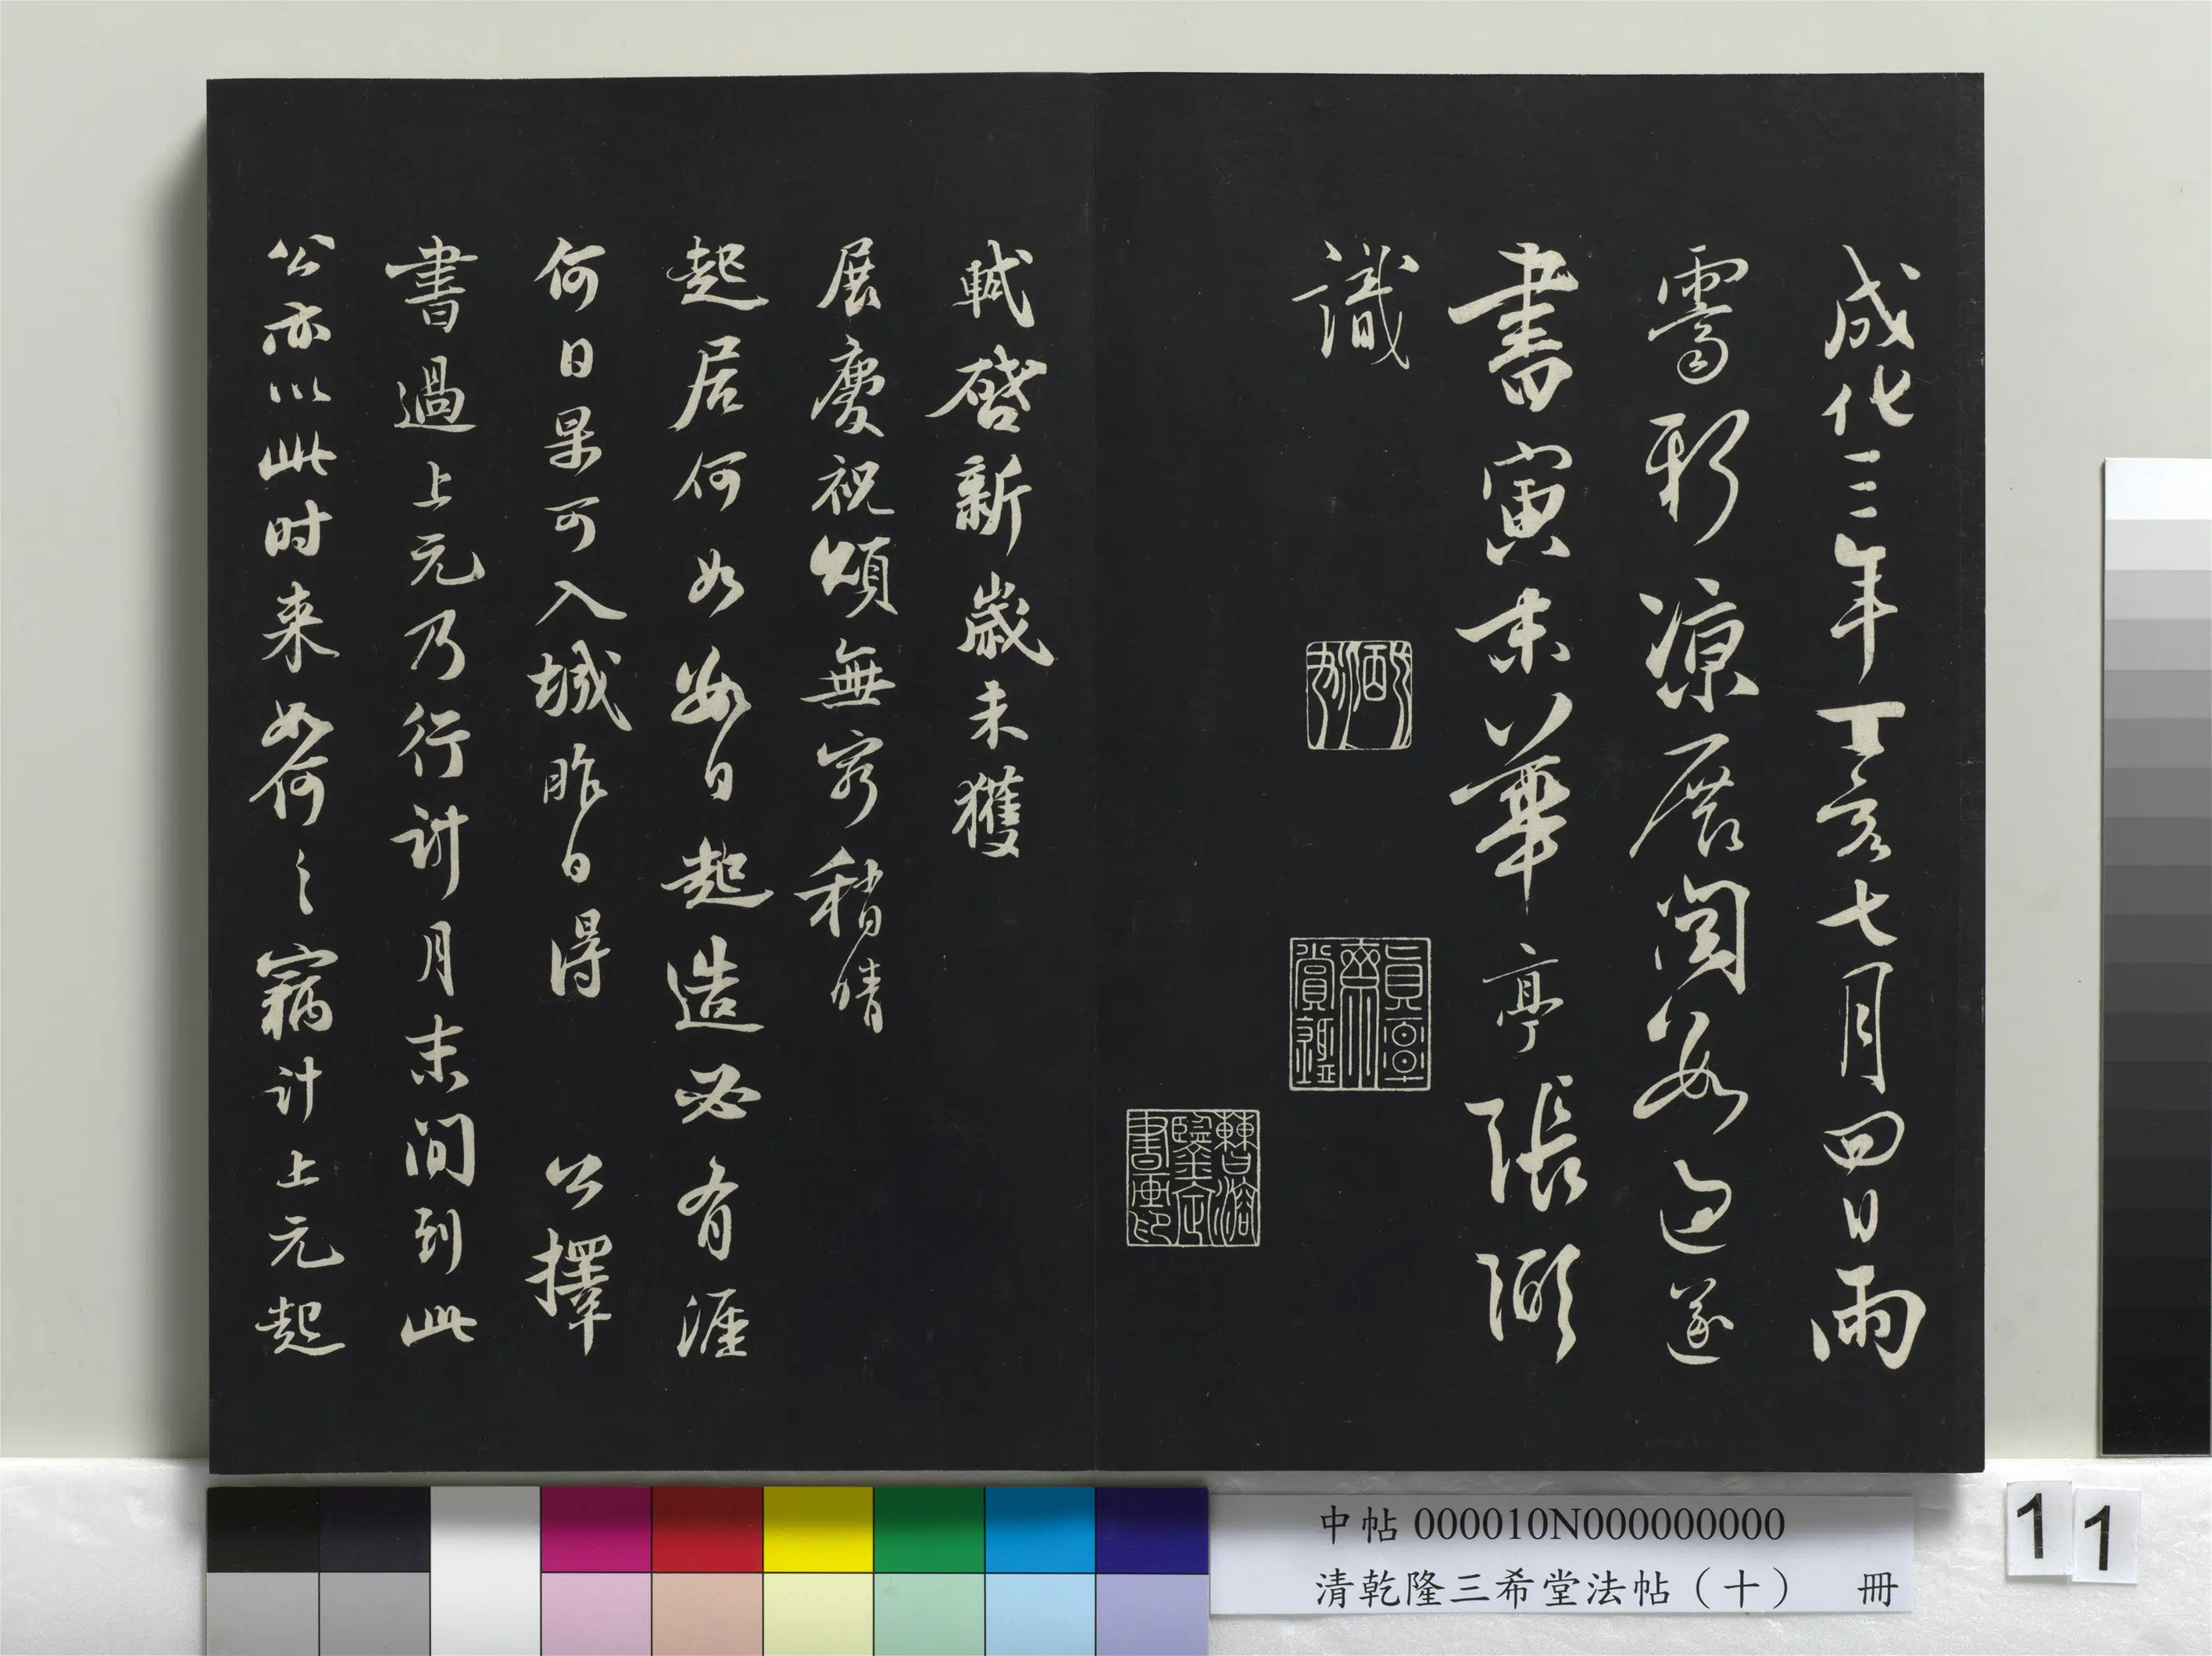 成化三年丁亥七月四日雨
霽新涼展閱數過遂
書寅末華亭張弼
識
軾啓新歲未獲
展慶祝頌無窮稍晴
起居何如數日起造必有涯
何日果可入城昨日得 公擇
書過上元乃行計月末間到此
公亦以此时来如何々竊計上元起
中帖 000010N000000000
清乾隆三希堂法帖（十） 冊
11